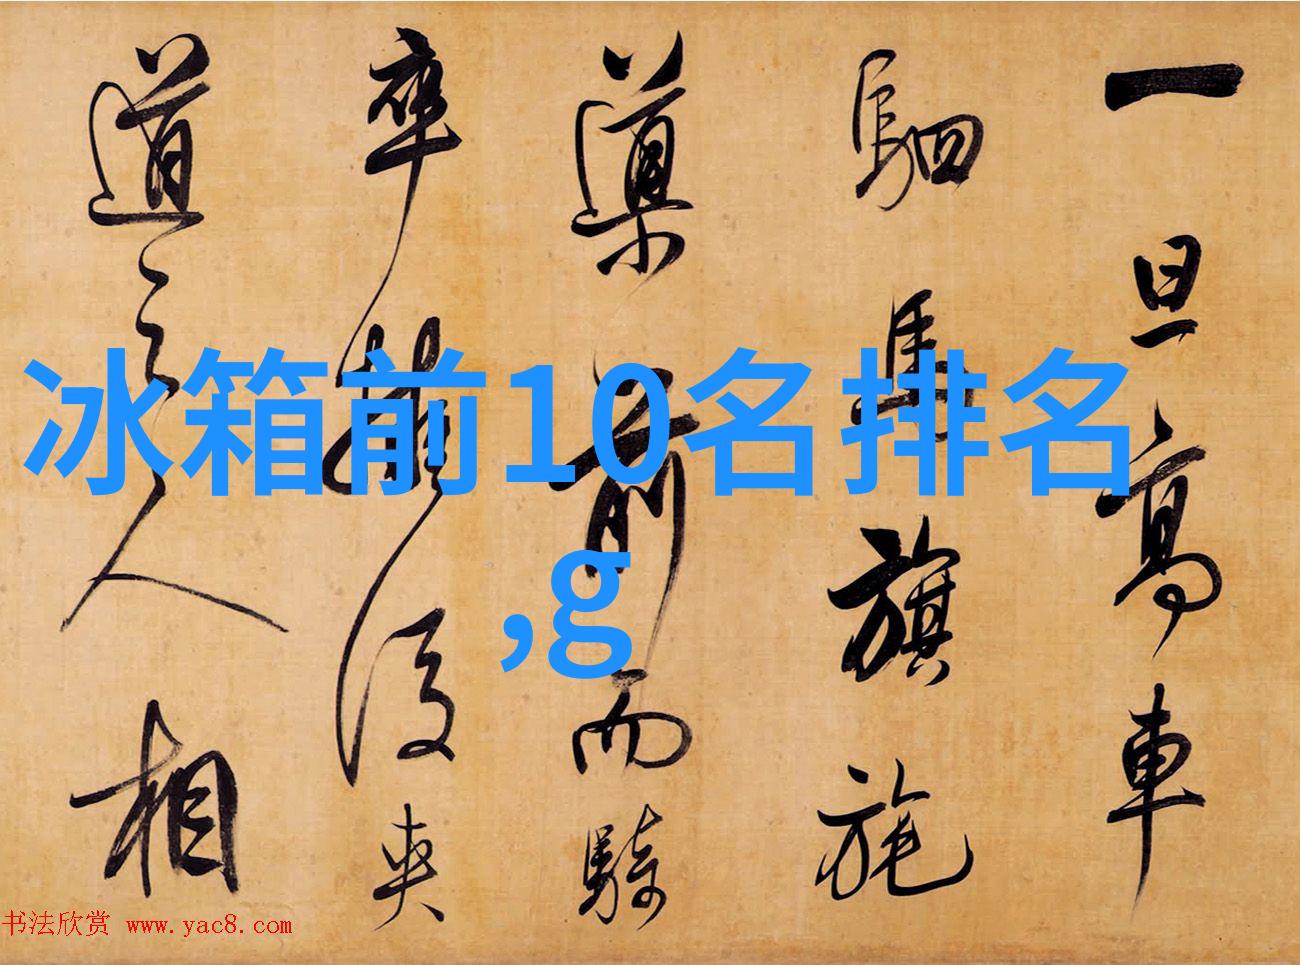 一旦高車
駟馬旗旄
導前而騎
卒擁後夾
道之人相
冰箱前10名排名
,g
书法欣赏 www.yac8.com